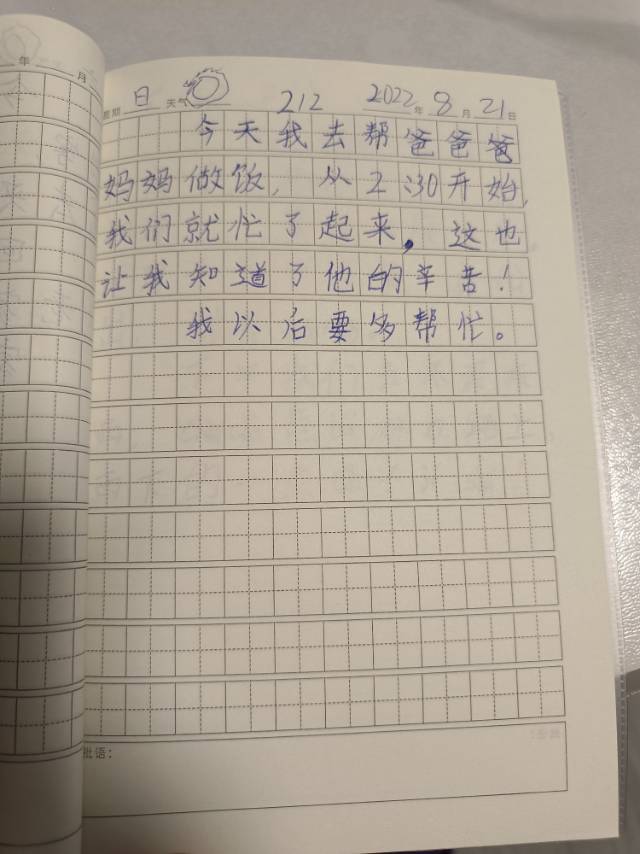 年 月
星期 日 天气 212 2022年 8月 21日
今天我去帮爸爸爸
妈妈做饭,从2:30开始,
我们就忙了起来,这也
让我知道了他的辛苦!
我以后要多帮忙。
批语: